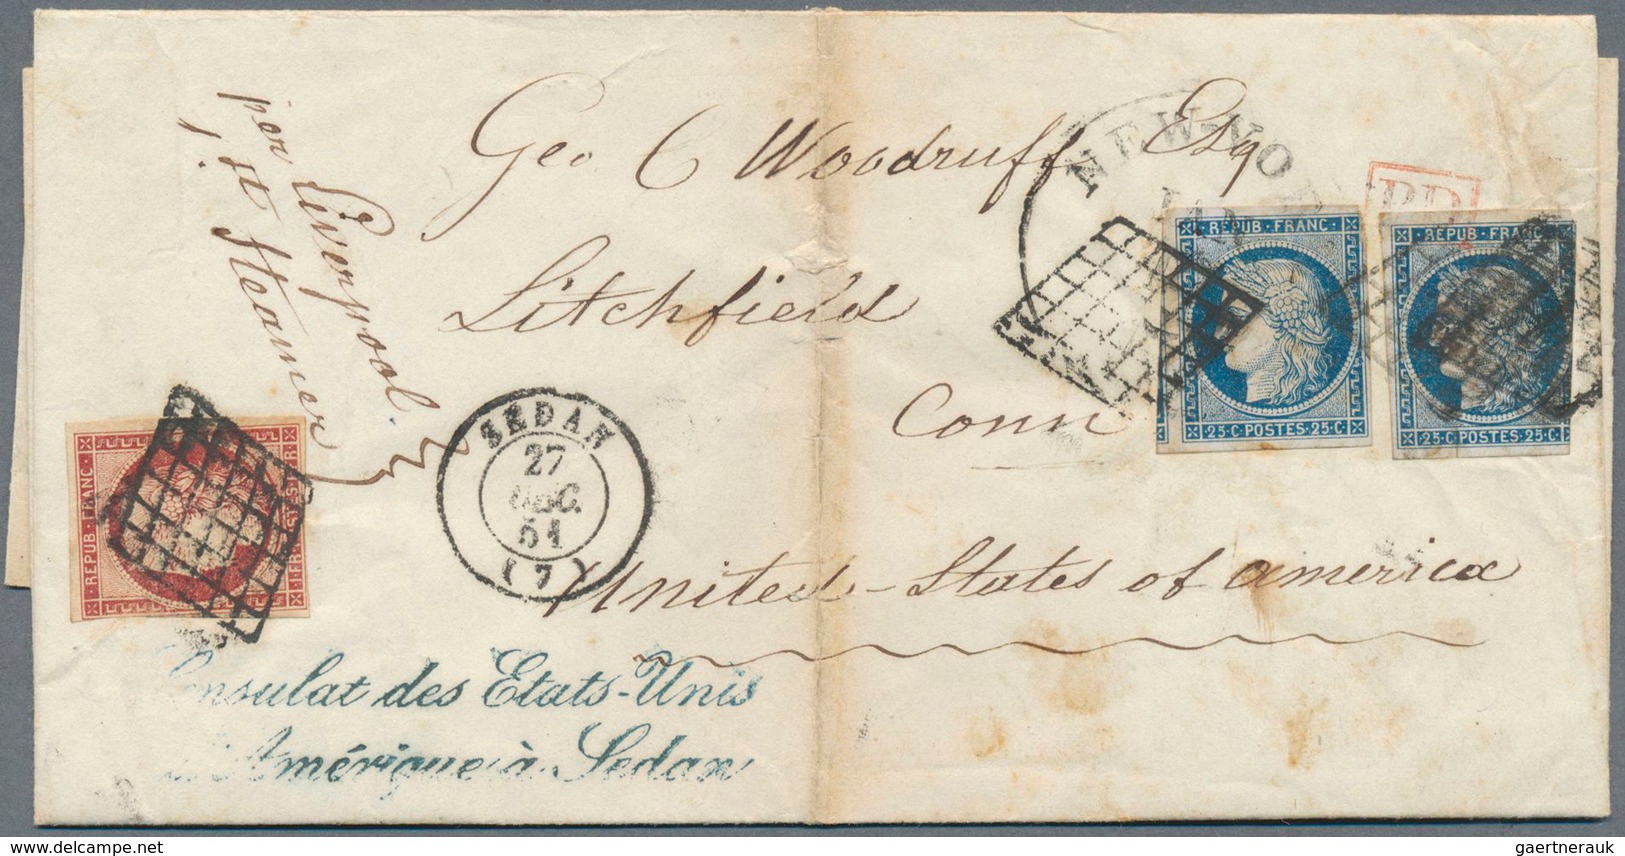 per Liverpool
1. st Steamer
Geo C Woodruff Esq
Litchfield
Conn
United-States of america
NEW-YO
JAN
PD
REPUB·FRANC·
25·C·POSTES·25·C·
REPUB·FRANC·
25·C·POSTES·25·C·
REPUB·FRANC·
SEDAN
27
DEC.
51
(7)
Consulat des Etats-Unis
d'Amérique à Sedan
www.delcampe.net
gaertnerauk